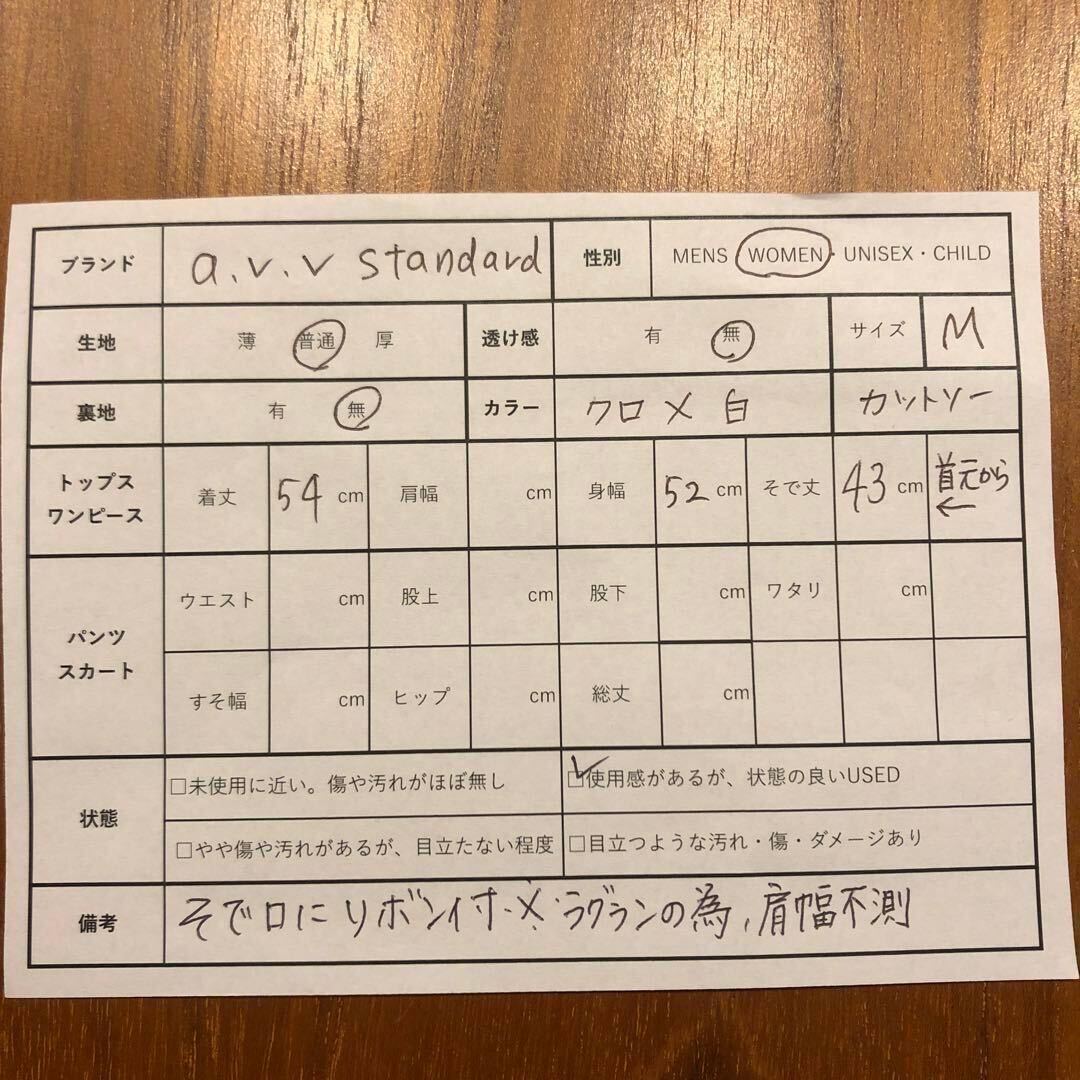 ブランド a.v.v standard 性別 MENS WOMEN・UNISEX・CHILD
生地 薄 普通 厚 透け感 有 無 サイズ M
裏地 有 無 カラー クロ×白 カットソー
トップス
ワンピース
着丈 54 cm 肩幅 cm 身幅 52 cm そで丈 43 cm 首元から
←
パンツ
スカート
ウエスト cm 股上 cm 股下 cm ワタリ cm
すそ幅 cm ヒップ cm 総丈 cm
状態
□未使用に近い。傷や汚れがほぼ無し □使用感があるが、状態の良いUSED
□やや傷や汚れがあるが、目立たない程度 □目立つような汚れ・傷・ダメージあり
備考 そで口にリボン付.※ラグランの為、肩幅不測